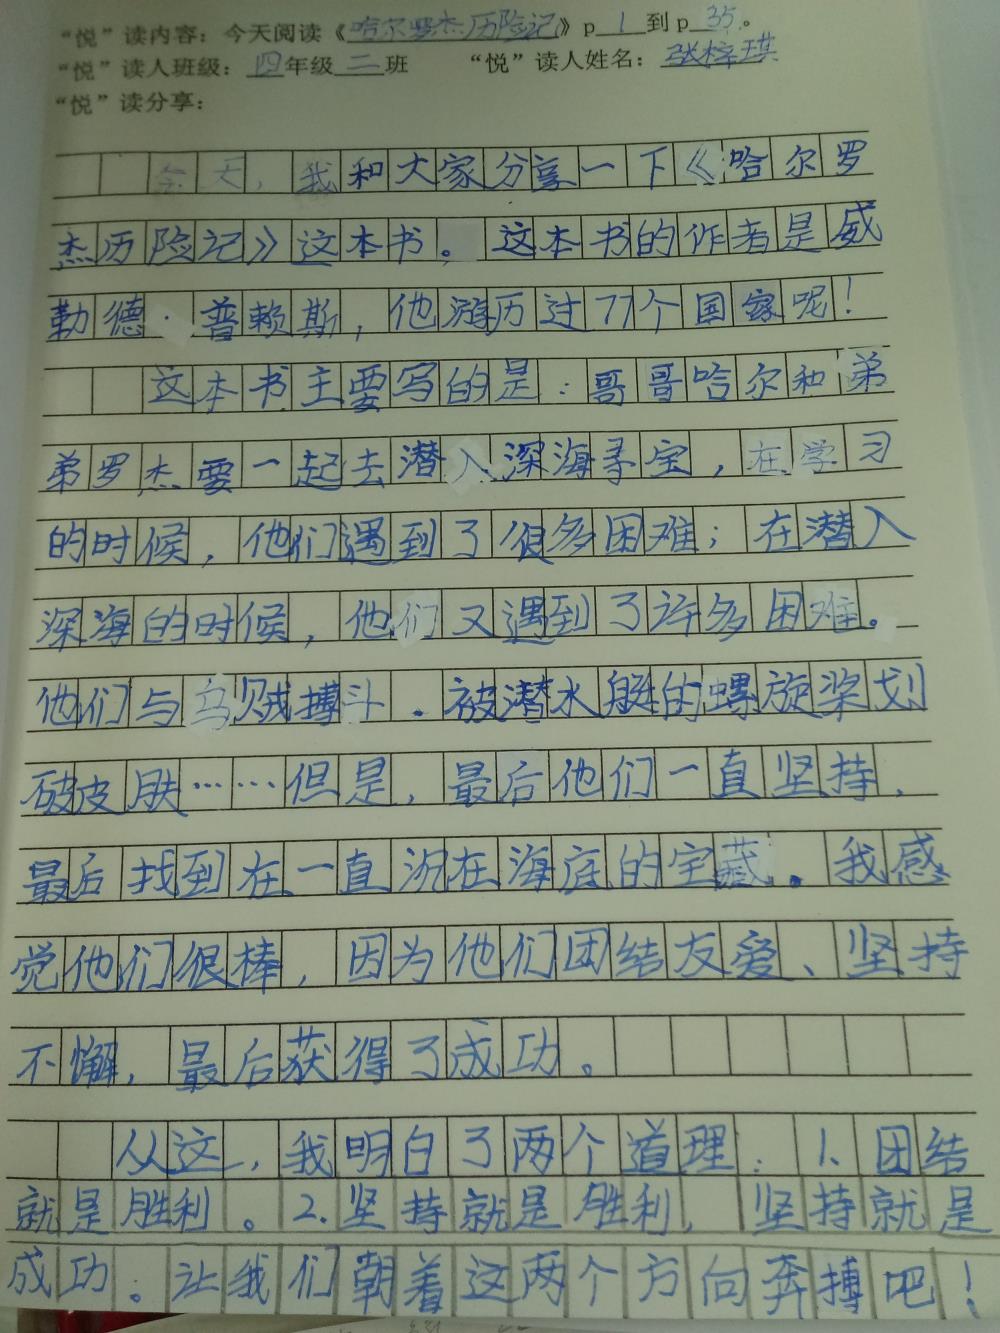 “悦”读内容：今天阅读《哈尔罗杰历险记》p 1 到p 35。
“悦”读人班级：四年级二班 “悦”读人姓名：张梓琪
“悦”读分享：
今天，我和大家分享一下《哈尔罗
杰历险记》这本书。这本书的作者是威
勒德·普赖斯，他游历过77个国家呢！
这本书主要写的是：哥哥哈尔和弟
弟罗杰要一起去潜入深海寻宝，在学习
的时候，他们遇到了很多困难；在潜入
深海的时候，他们又遇到了许多困难。
他们与乌贼搏斗．被潜水艇的螺旋桨划
破皮肤……但是，最后他们一直坚持，
最后找到在一直沉在海底的宝藏。我感
觉他们很棒，因为他们团结友爱、坚持
不懈，最后获得了成功。
从这，我明白了两个道理：1、团结
就是胜利。2.坚持就是胜利，坚持就是
成功。让我们朝着这两个方向奔搏吧！